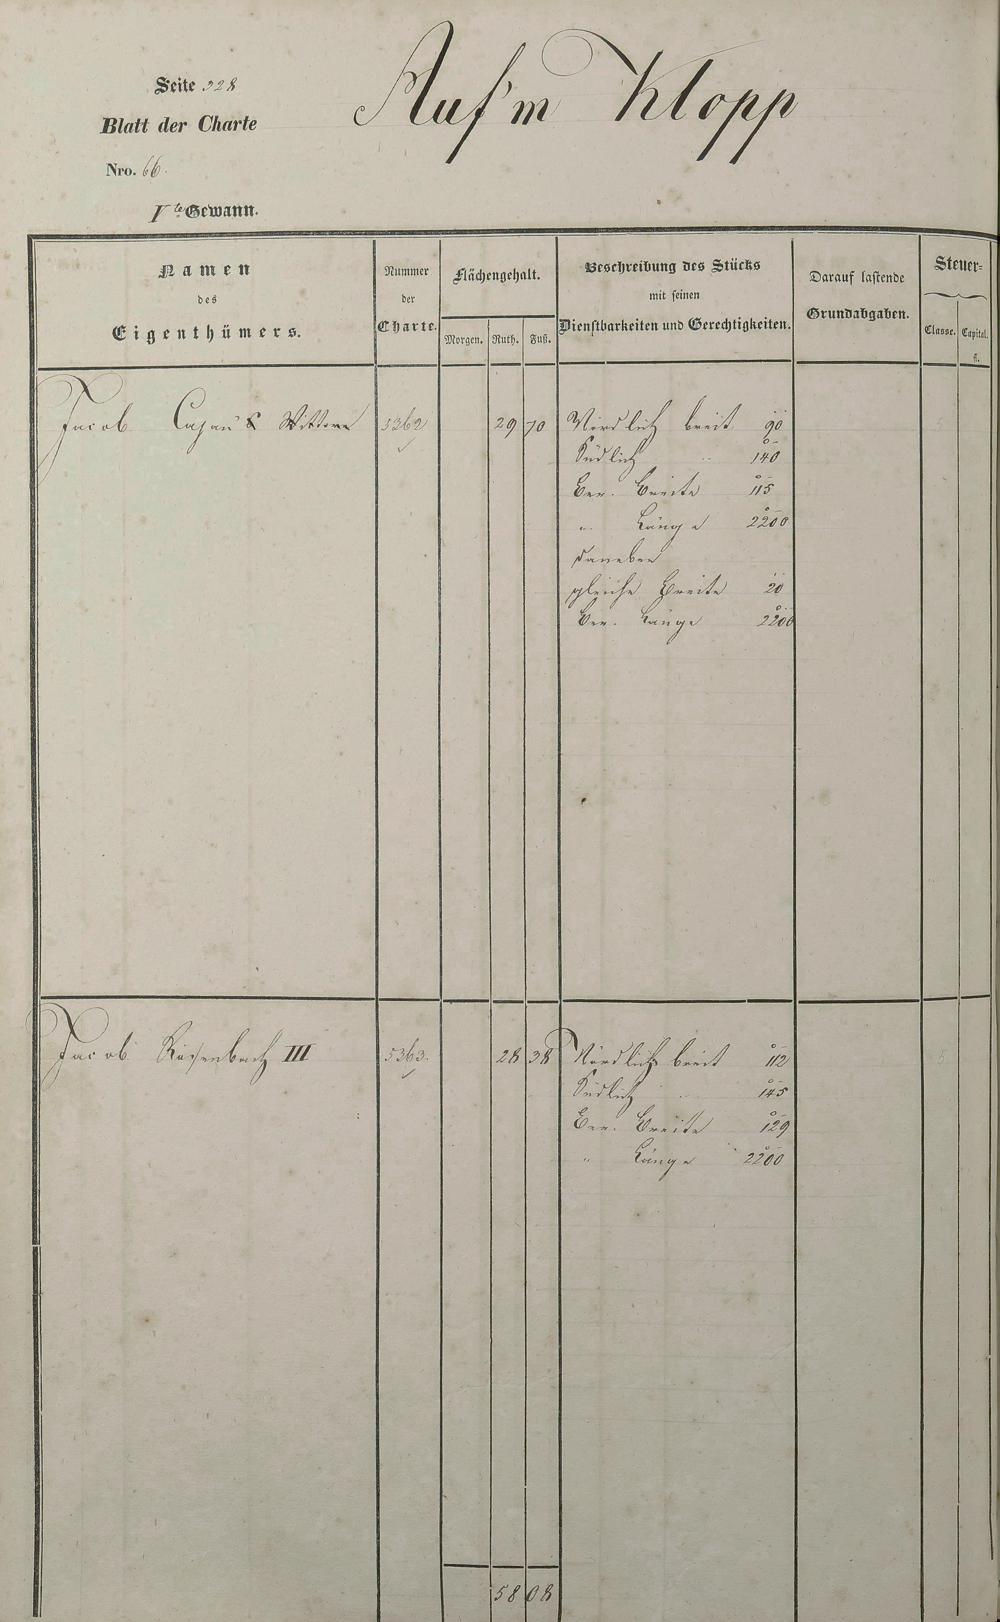 Auf'm Klopp
Seite 328
Blatt der Charte
Nro. 66.
Vte Gewann.
Namen
des
Eigenthümers.
Nummer
der
Charte.
Flächengehalt.
Morgen. Ruth. Fuß.
Beschreibung des Stücks
mit seinen
Dienstbarkeiten und Gerechtigkeiten.
Darauf lastende
Grundabgaben.
Steuer-
Classe. Capital.
fl.
Jacob Cajau's Wittwe 5362 29 70 Nördlich breit 90
Südlich " 140
Ber. Breite 115
" Länge 2200
daneben
gleiche Breite 20
Ber. Länge 2200
Jacob III 5363. 28 38 Nördlich breit 112
Südlich " 145
Ber. Breite 129
" Länge 2200
58 08